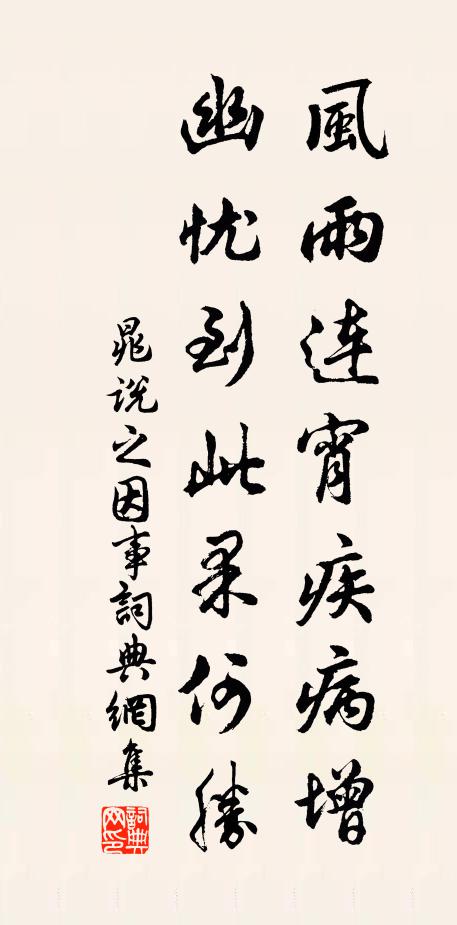 風雨連宵疾病增
幽忧到此果何勝
晁說之因事詞典網集
詞典網印